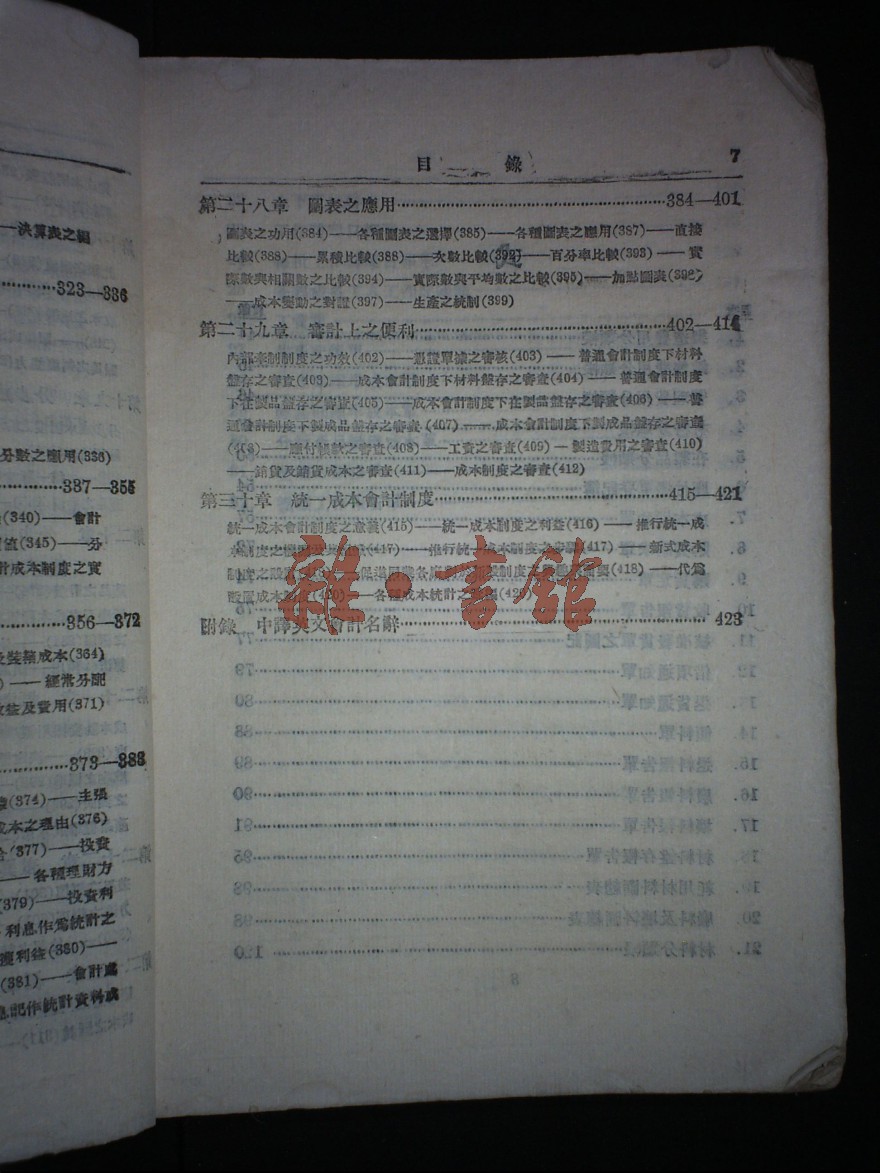 決算表之編
323—336
分數之應用(336)
337—355
(340)——會計
值(345)——分
計成本制度之實
356—372
裝箱成本(364)
——經常分配
收益及費用(371)
373—383
(374)——主張
成本之理由(376)
(377)——投資
——各種理財方
(379)——投資利
利息作爲統計之
獲利益(380)——
(381)——會計處
息記作統計資料或
目錄 7
第二十八章 圖表之應用 384—401
圖表之功用(384)——各種圖表之選擇(385)——各種圖表之應用(387)——直接
比較(388)——累積比較(388)——次數比較(392)——百分率比較(393)——實
際數與相關數之比較(394)——實際數與平均數之比較(395)——加點圖表(396)
——成本變動之對證(397)——生產之統制(399)
第二十九章 審計上之便利 402—414
內部牽制制度之功效(402)——憑證單據之審核(403)——普通會計制度下材料
盤存之審查(403)——成本會計制度下材料盤存之審查(404)——普通會計制度
下在製品盤存之審查(405)——成本會計制度下在製品盤存之審查(406)——普
通會計制度下製成品盤存之審查(407)——成本會計制度下製成品盤存之審查
(408)——應付帳款之審查(408)——工資之審查(409)—製造費用之審查(410)
——銷貨及銷貨成本之審查(411)——成本制度之審查(412)
第三十章 統一成本會計制度 415—421
統一成本會計制度之意義(415)——統一成本制度之利益(416)——推行統一成
本制度之(417)——推行統一成本制度之(417)——新式成本
制度之(418)——代爲
成本制度(420)——各種成本統計之
附錄 中譯英文會計名辭 423
雜·書館